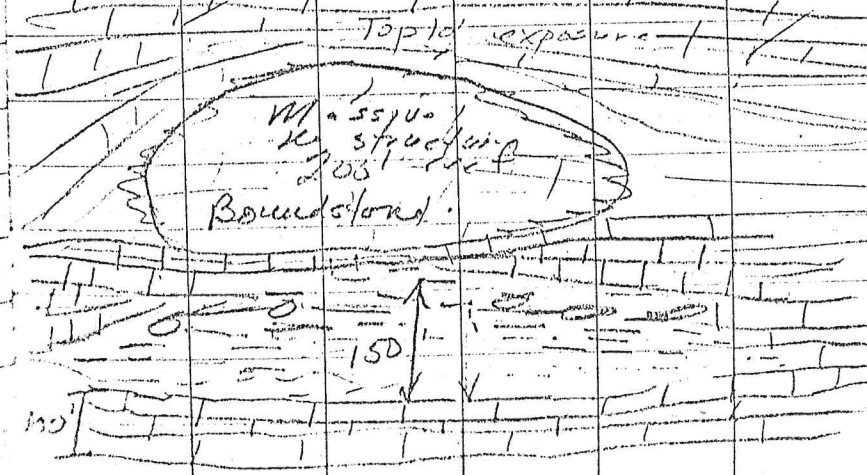 Top 10' exposure
Massive
No structure
200' reef
Boundstone.
150